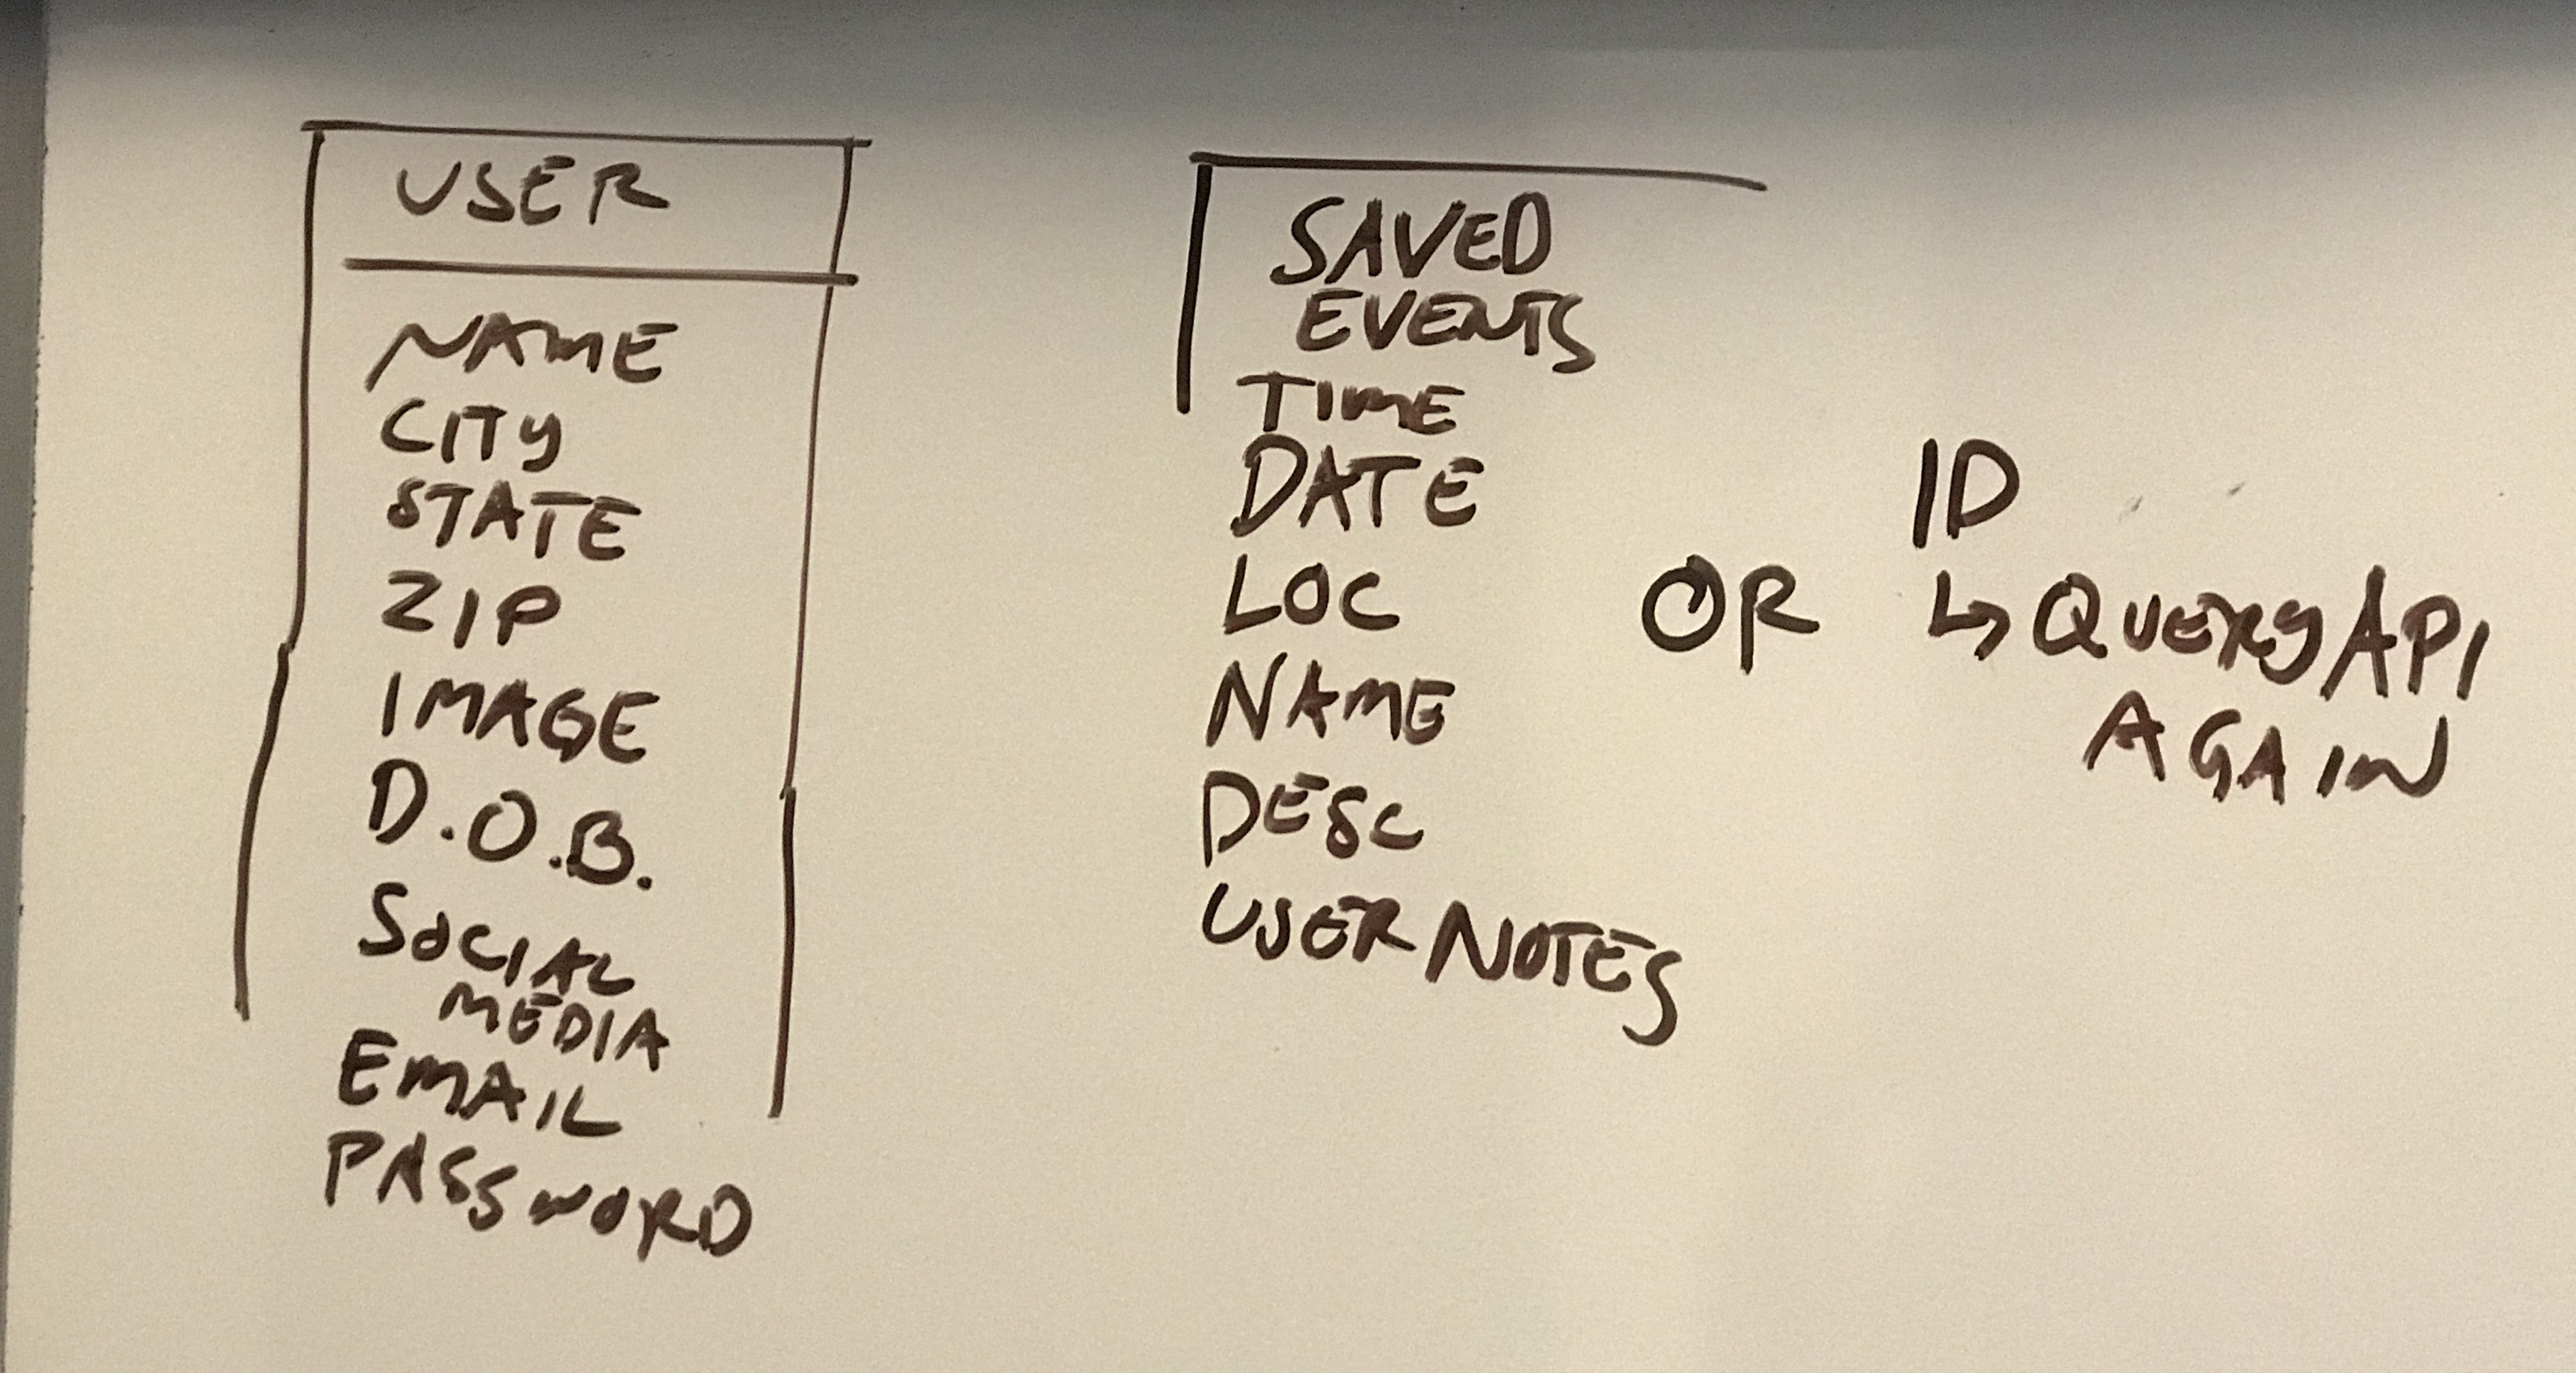 USER
NAME
CITY
STATE
ZIP
IMAGE
D.O.B.
SOCIAL
MEDIA
EMAIL
PASSWORD
SAVED
EVENTS
TIME
DATE
LOC
NAME
DESC
USER NOTES
OR
ID
↳ QUERY API
AGAIN